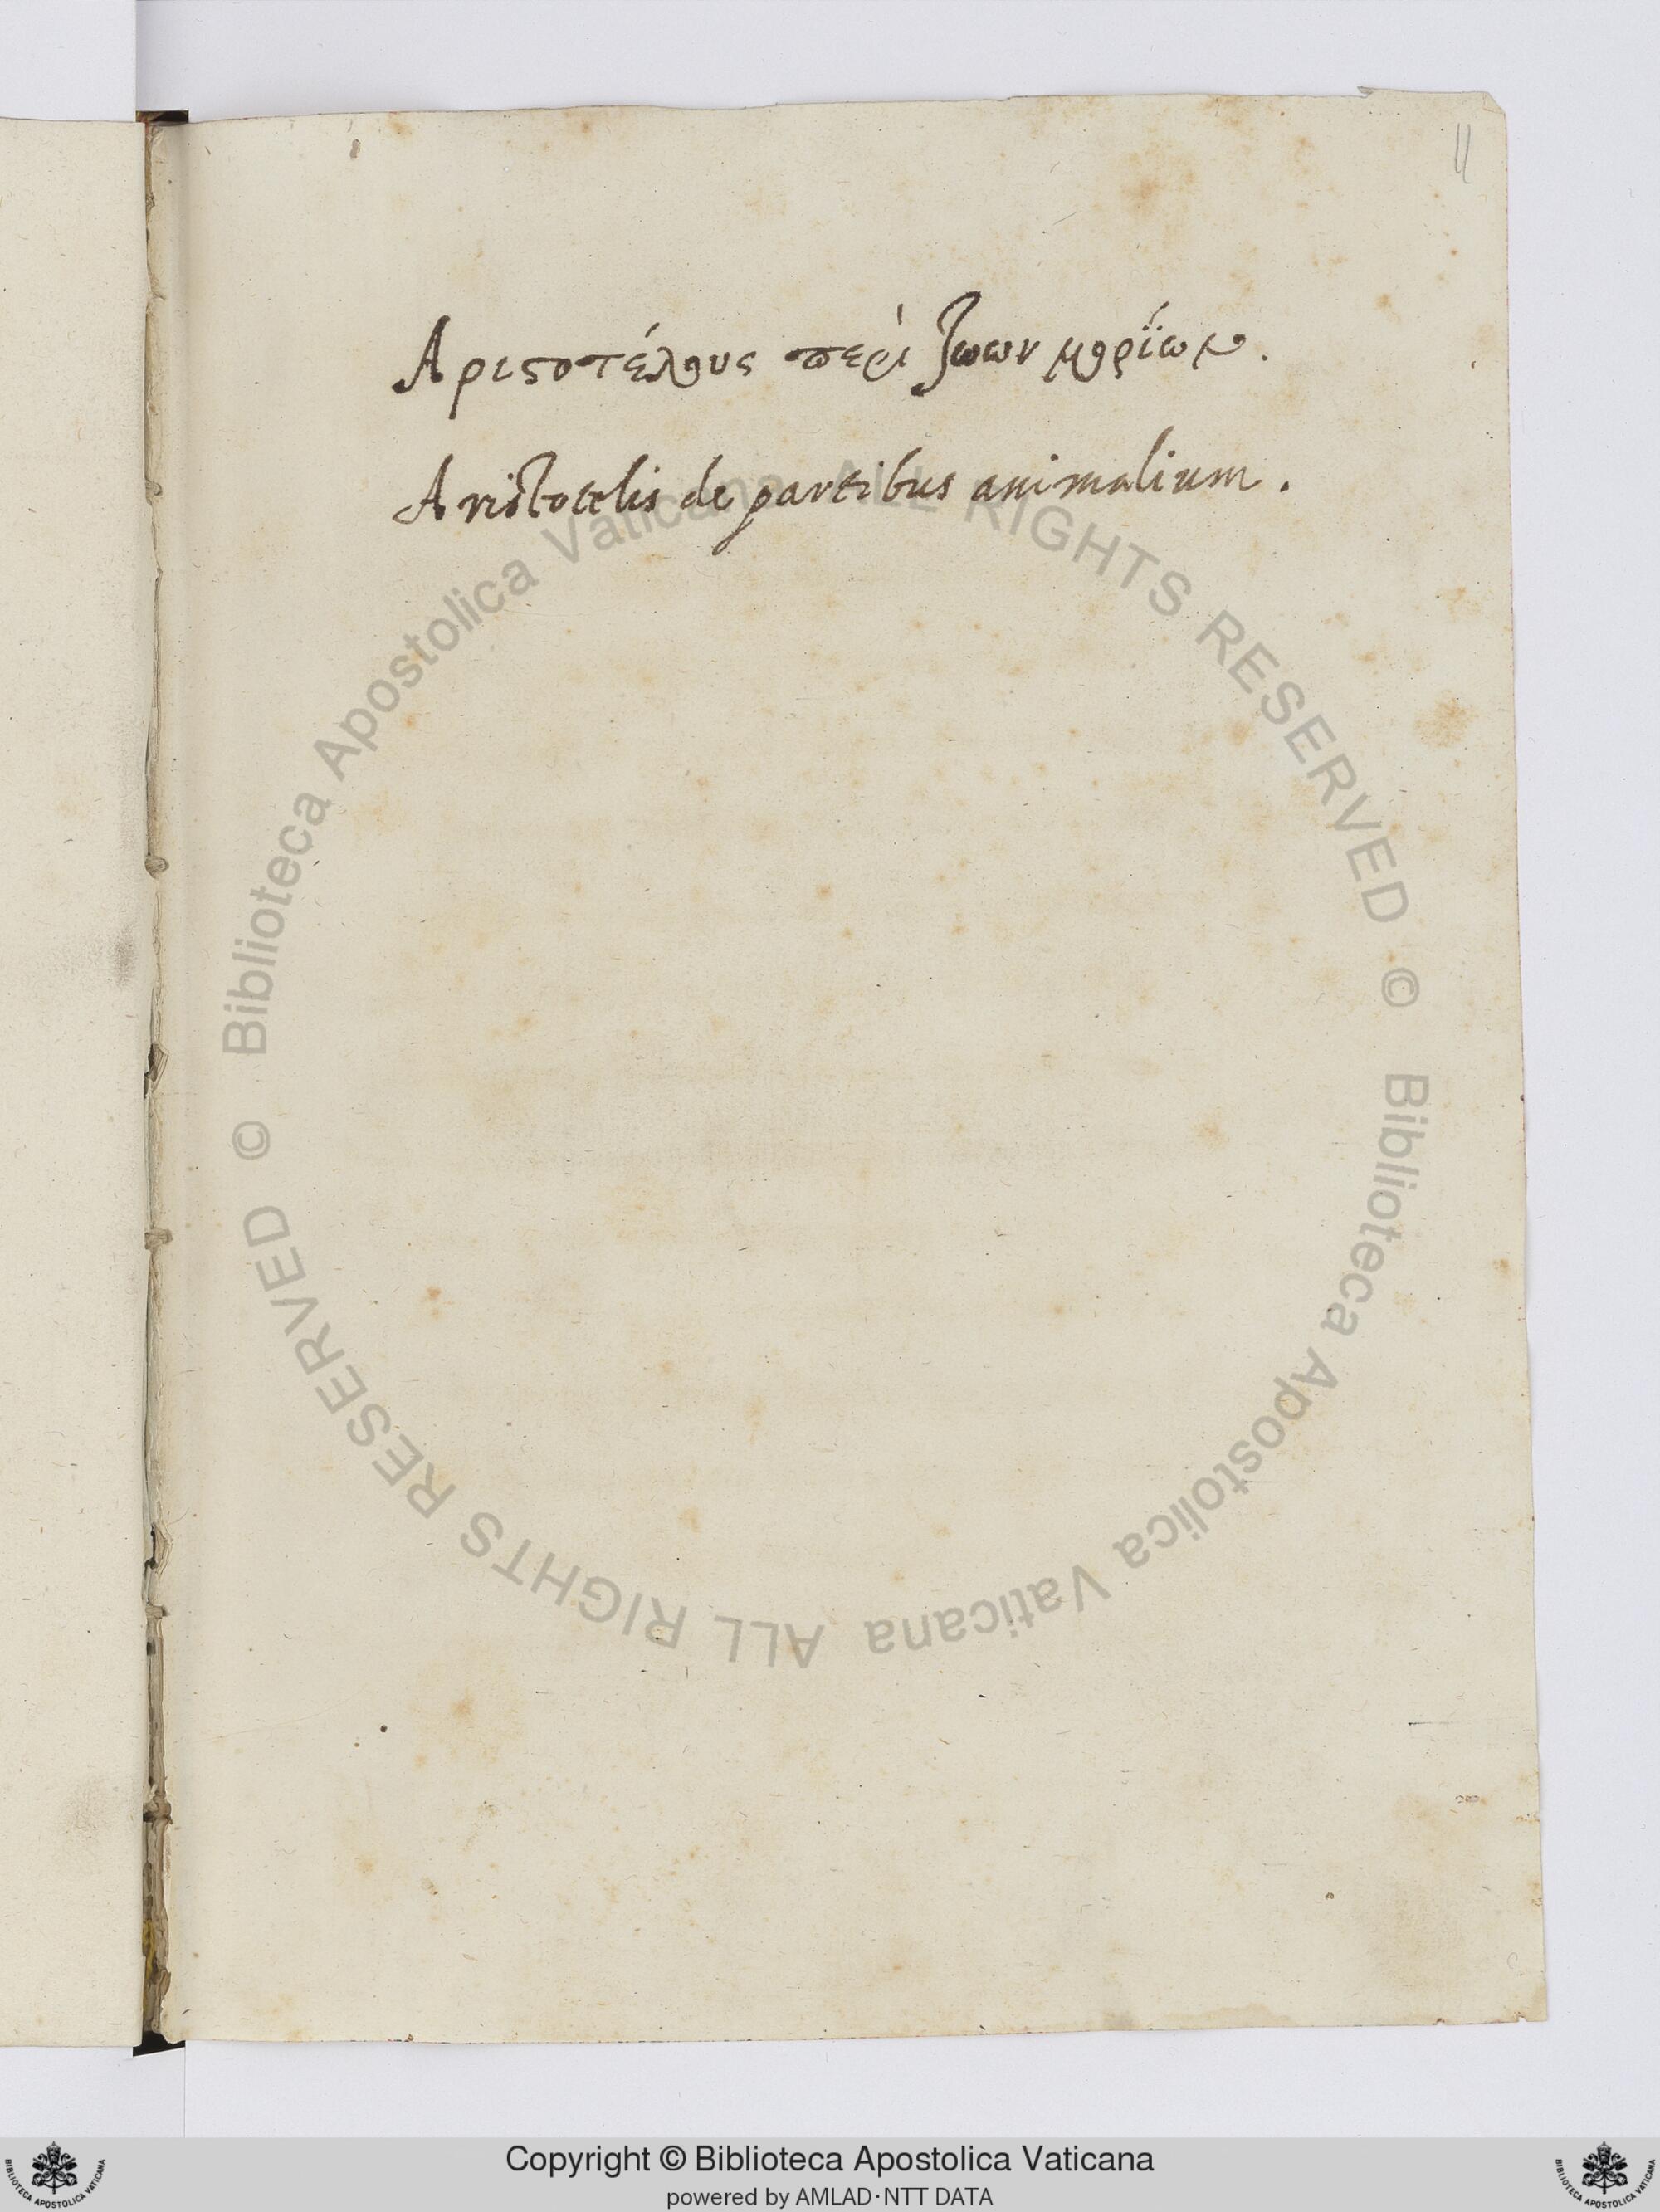 II
Αριϛοτέλους περὶ ζωων μορΐων.
Aristotelis de partibus animalium.
© Biblioteca Apostolica Vaticana ALL RIGHTS RESERVED
© Biblioteca Apostolica Vaticana ALL RIGHTS RESERVED
Copyright © Biblioteca Apostolica Vaticana
powered by AMLAD·NTT DATA
BIBLIOTECA APOSTOLICA VATICANA
BIBLIOTECA APOSTOLICA VATICANA